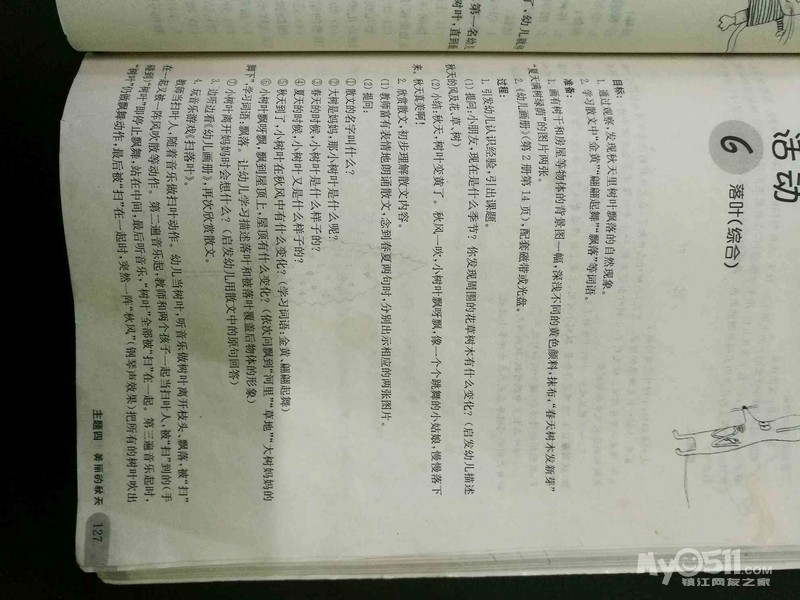 第一名幼
树叶,直到
了,幼儿就
活动
6
落叶(综合)
目标:
1. 通过观察,发现秋天里树叶飘落的自然现象。
2. 学习散文中“金黄”“翩翩起舞”“飘落”等词语。
准备:
1. 画有树干和房屋等物体的背景图一幅,深浅不同的黄色颜料,抹布,“春天树木发新芽”
“夏天满树绿荫”的图片两张。
2.《幼儿画册》(第 2 册第 14 页),配套磁带或光盘。
过程:
1. 引发幼儿认识经验,引出课题。
(1) 提问:小朋友,现在是什么季节?你发现周围的花草树木有什么变化?(启发幼儿描述
秋天的风及花、草、树)
(2) 小结:秋天,树叶变黄了。秋风一吹,小树叶飘呀飘,像一个个跳舞的小姑娘,慢慢落下
来。秋天真美啊!
2. 欣赏散文,初步理解散文内容。
(1) 教师富有表情地朗诵散文,念到春夏两句时,分别出示相应的两张图片。
(2) 提问:
①散文的名字叫什么?
②大树是妈妈,那小树叶是什么呢?
③春天的时候,小树叶是什么样子的?
④夏天的时候,小树叶又是什么样子的?
⑤秋天到了,小树叶在秋风中有什么变化?(学习词语:金黄、翩翩起舞)
⑥小树叶飘呀飘,飘到屋顶上,屋顶有什么变化?(依次问飘到“河里”“草地”“大树妈妈的
脚下”,学习词语:飘落。让幼儿学习描述落叶和被落叶覆盖后物体的形象)
⑦小树叶离开妈妈时会想什么?(启发幼儿用散文中的原句回答)
3. 边听边看《幼儿画册》,再次欣赏散文。
4. 玩音乐游戏《扫落叶》。
教师当扫叶人,随着音乐做扫叶动作。幼儿当树叶,听音乐做树叶离开枝头、飘落,被“扫”
在一起又被一阵风吹散等动作。第二遍音乐起,教师和两个孩子一起当扫叶人,被“扫”到的(手
碰到)“树叶”即停止飘舞,站在中间,最后听音乐,“树叶”全部被“扫”在一起。第三遍音乐起时,
“树叶”仍做飘舞动作,最后被“扫”在一起时,突然一阵“秋风”(钢琴声效果)把所有的树叶吹出
主题四 美丽的秋天 127
My0511.com
镇江网友之家